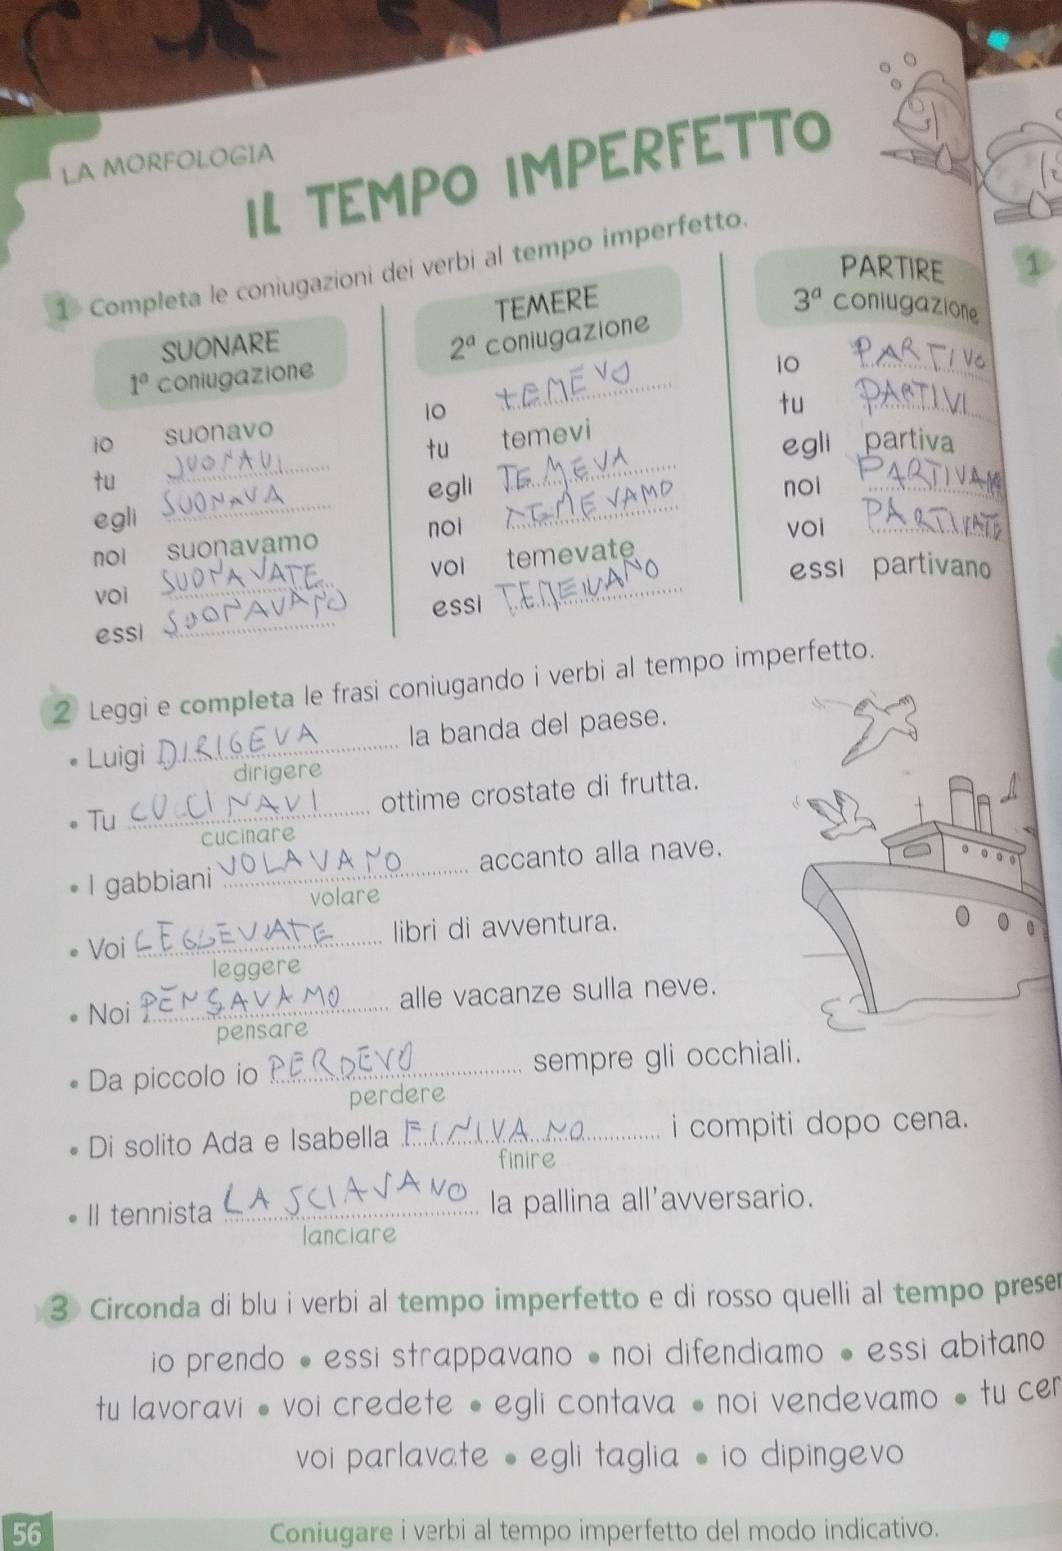 LA MORFOLOGIA
IL TEMPO IMPERFETTO
1 Completa le coniugazioni dei verbi al tempo imperfetto.
SUONARE
1ª coniugazione
io suonavo
tu SUONAVI
egli SUONAVA
noi suonavamo
voi SUONAVATE
essi SUONAVANO
TEMERE
2ª coniugazione
io tEMEVO
tu temevi
egli TEMEVA
noi TEMEVAMO
voi temevate
essi TEMEVANO
PARTIRE
3ª coniugazione
io PARTIVO
tu PARTIVI
egli partiva
noi PARTIVAM
voi PARTIVATE
essi partivano
1
2 Leggi e completa le frasi coniugando i verbi al tempo imperfetto.
• Luigi DIRIGEVA la banda del paese.
dirigere
• Tu CUCINAVI ottime crostate di frutta.
cucinare
• I gabbiani VOLAVANO accanto alla nave.
volare
• Voi LEGGEVATE libri di avventura.
leggere
• Noi PENSAVAMO alle vacanze sulla neve.
pensare
• Da piccolo io PERDEVO sempre gli occhiali.
perdere
• Di solito Ada e Isabella FINIVANO i compiti dopo cena.
finire
• Il tennista LASCIAVANO la pallina all'avversario.
lanciare
3 Circonda di blu i verbi al tempo imperfetto e di rosso quelli al tempo preser
io prendo • essi strappavano • noi difendiamo • essi abitano
tu lavoravi • voi credete • egli contava • noi vendevamo • tu cer
voi parlavate • egli taglia • io dipingevo
56 Coniugare i verbi al tempo imperfetto del modo indicativo.